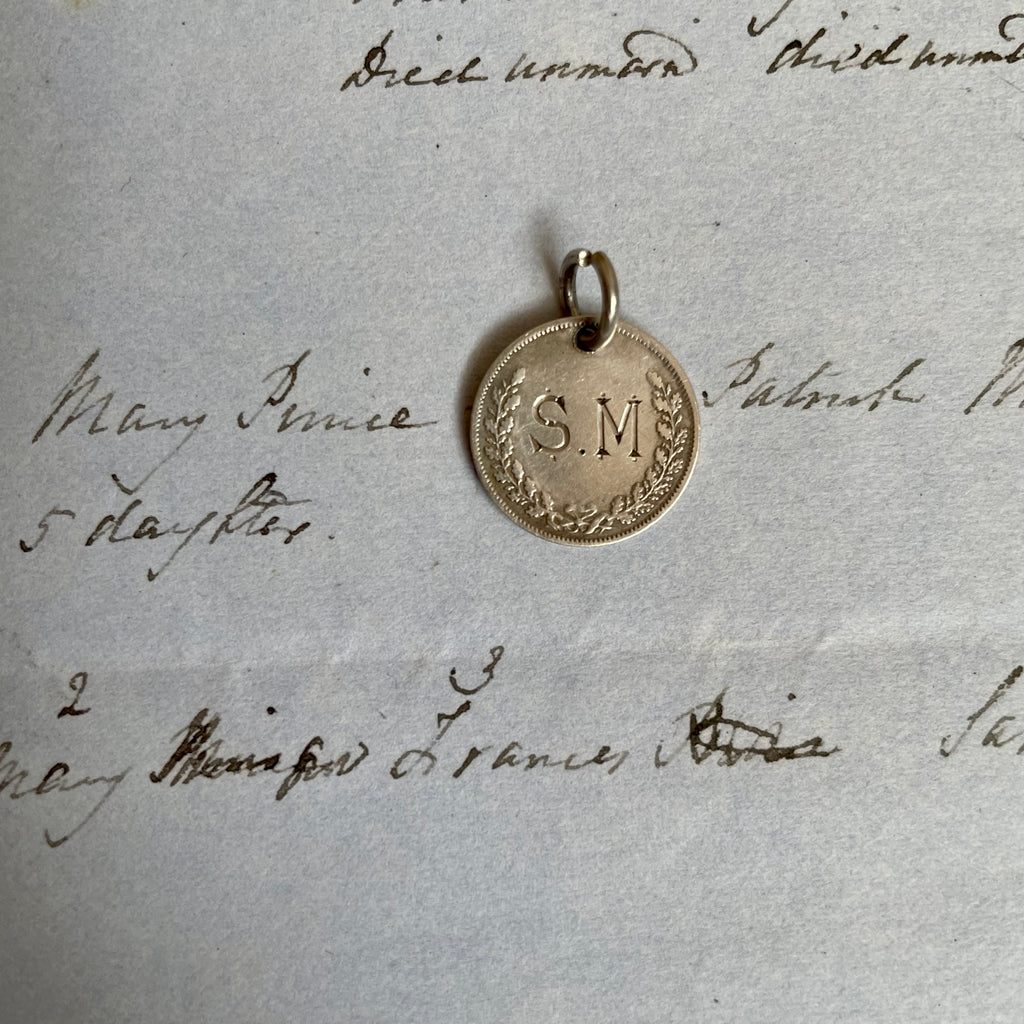 Died unmard died unm
Mary Prince S.M Patrick
5 daughter.
2 3
Mary Frances Sar